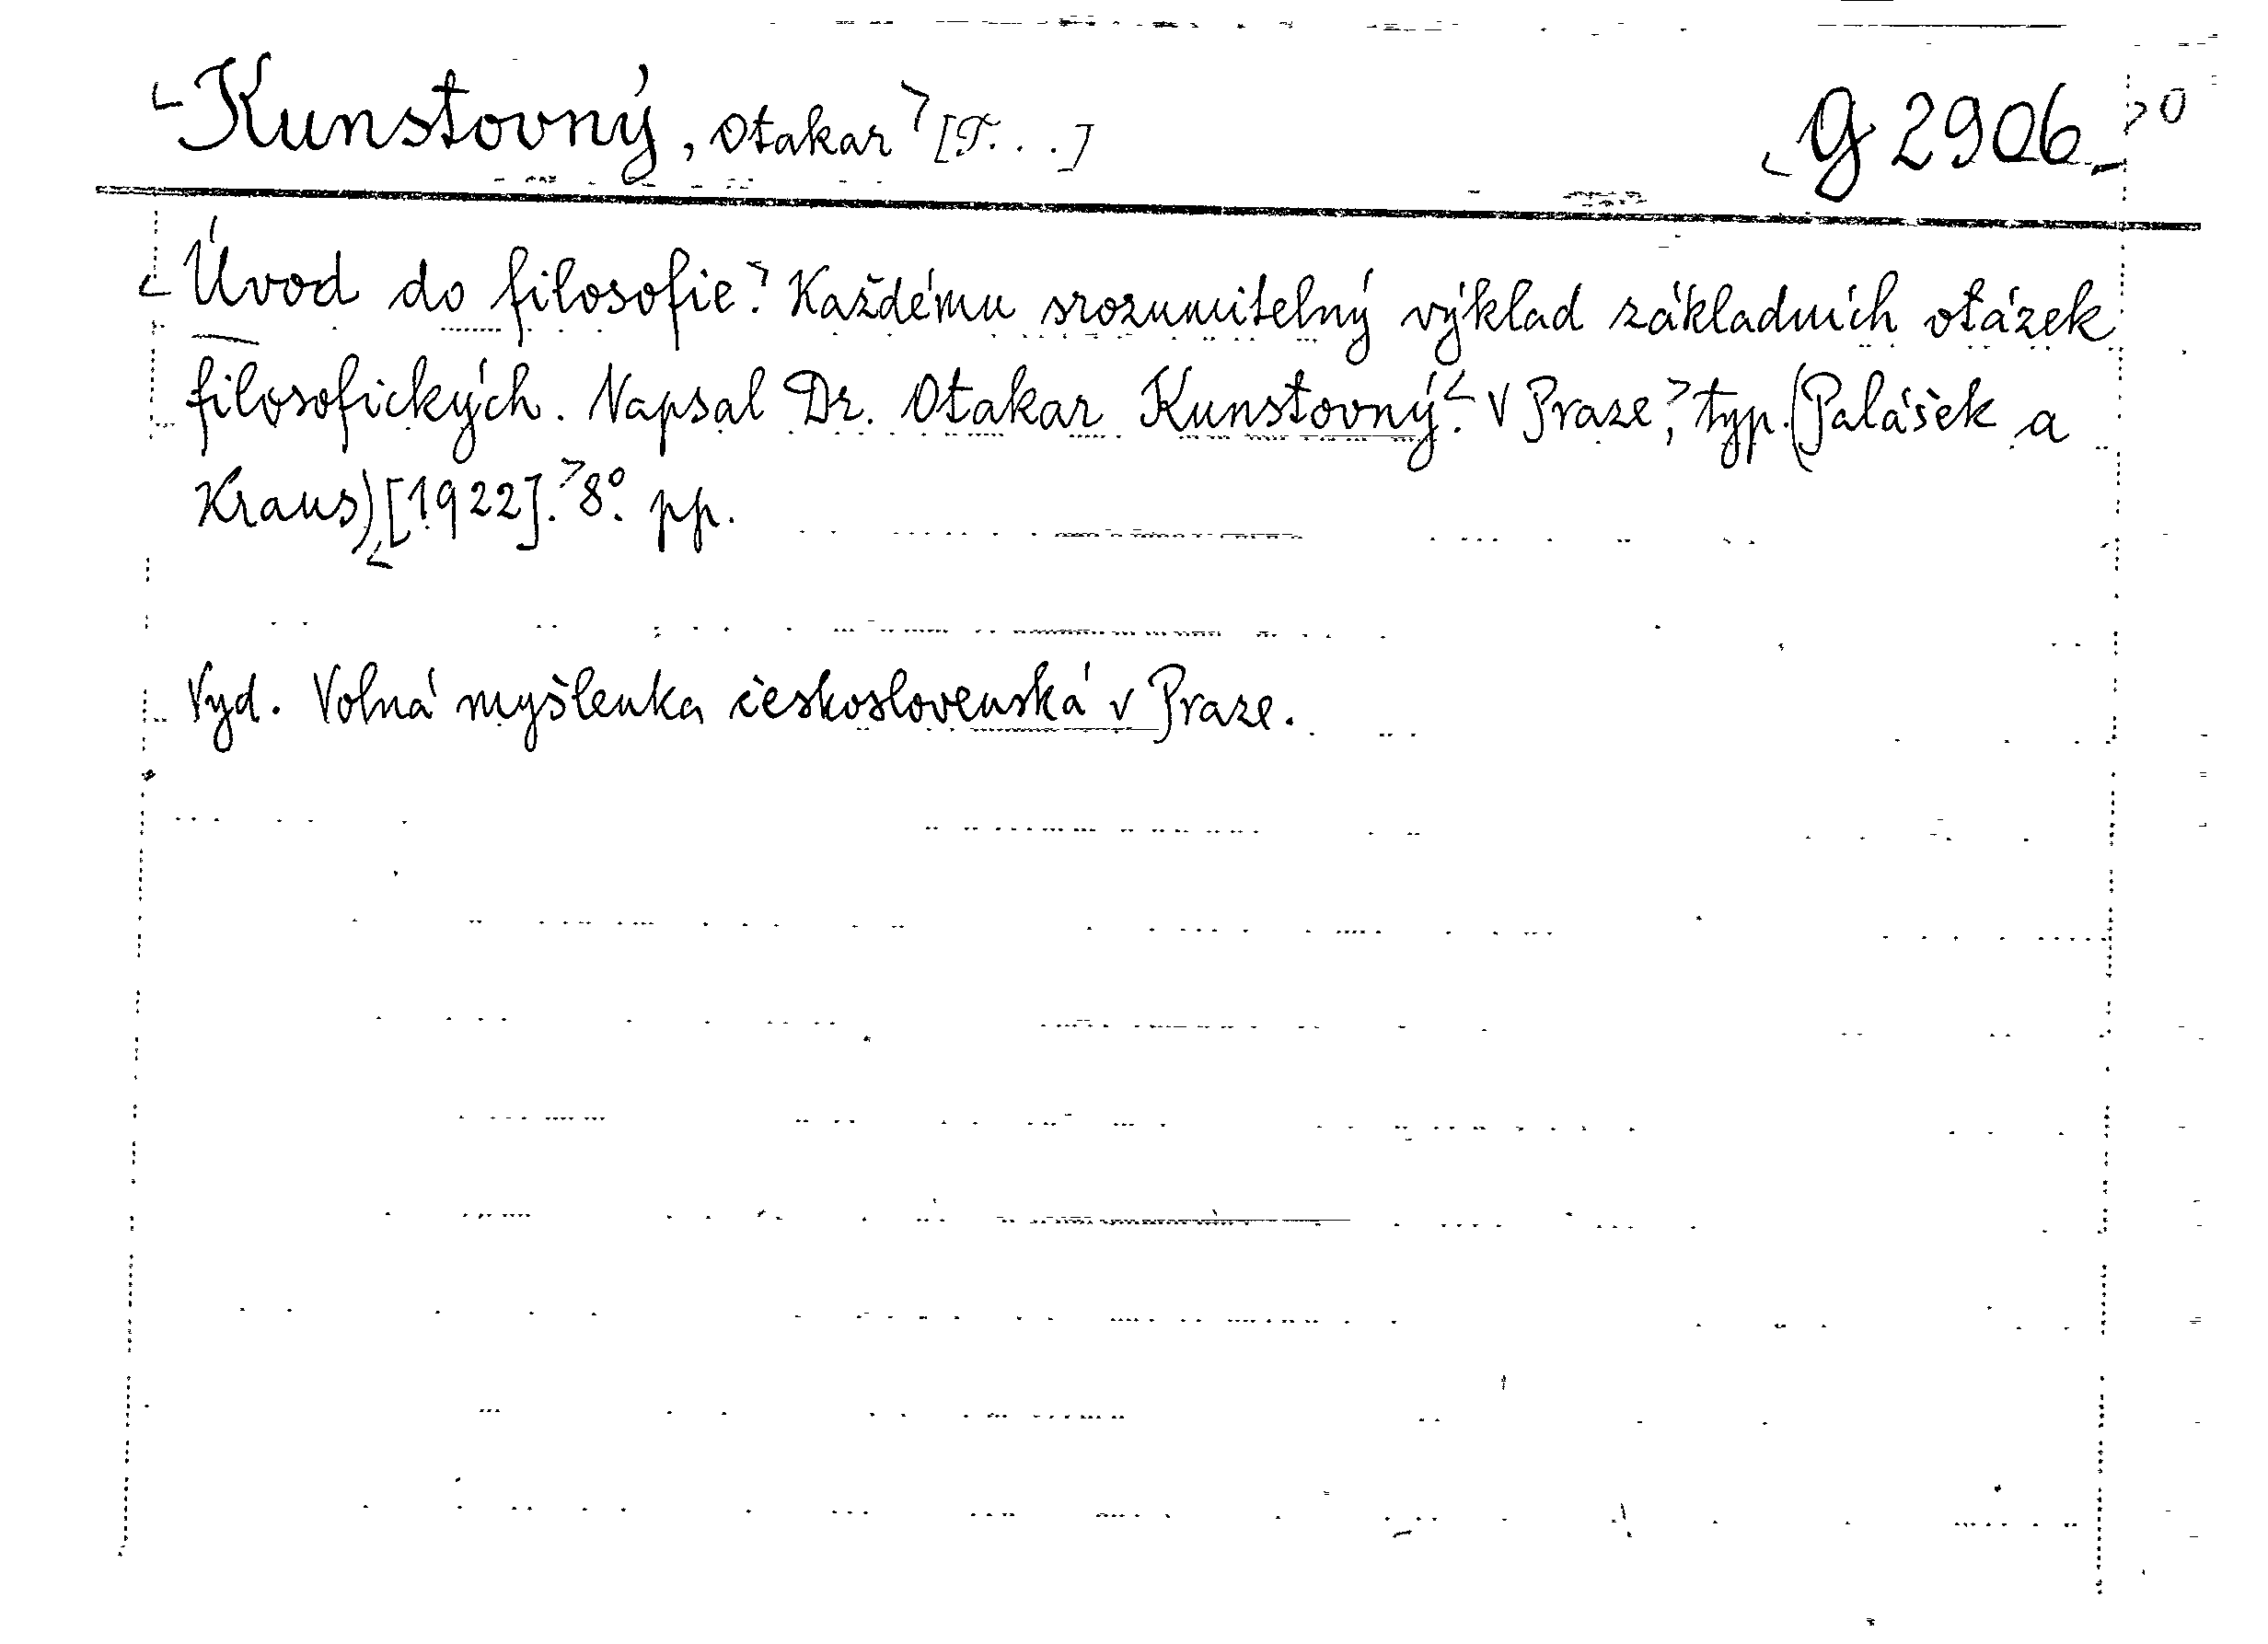 Kunstovný, Otakar [T...] G 2906
Úvod do filosofie. Každému srozumitelný výklad základních otázek
filosofických. Napsal Dr. Otakar Kunstovný. V Praze, typ. (Palášek a
Kraus) [1922]. 8°. pp.
Vyd. Volná myšlenka československá v Praze.